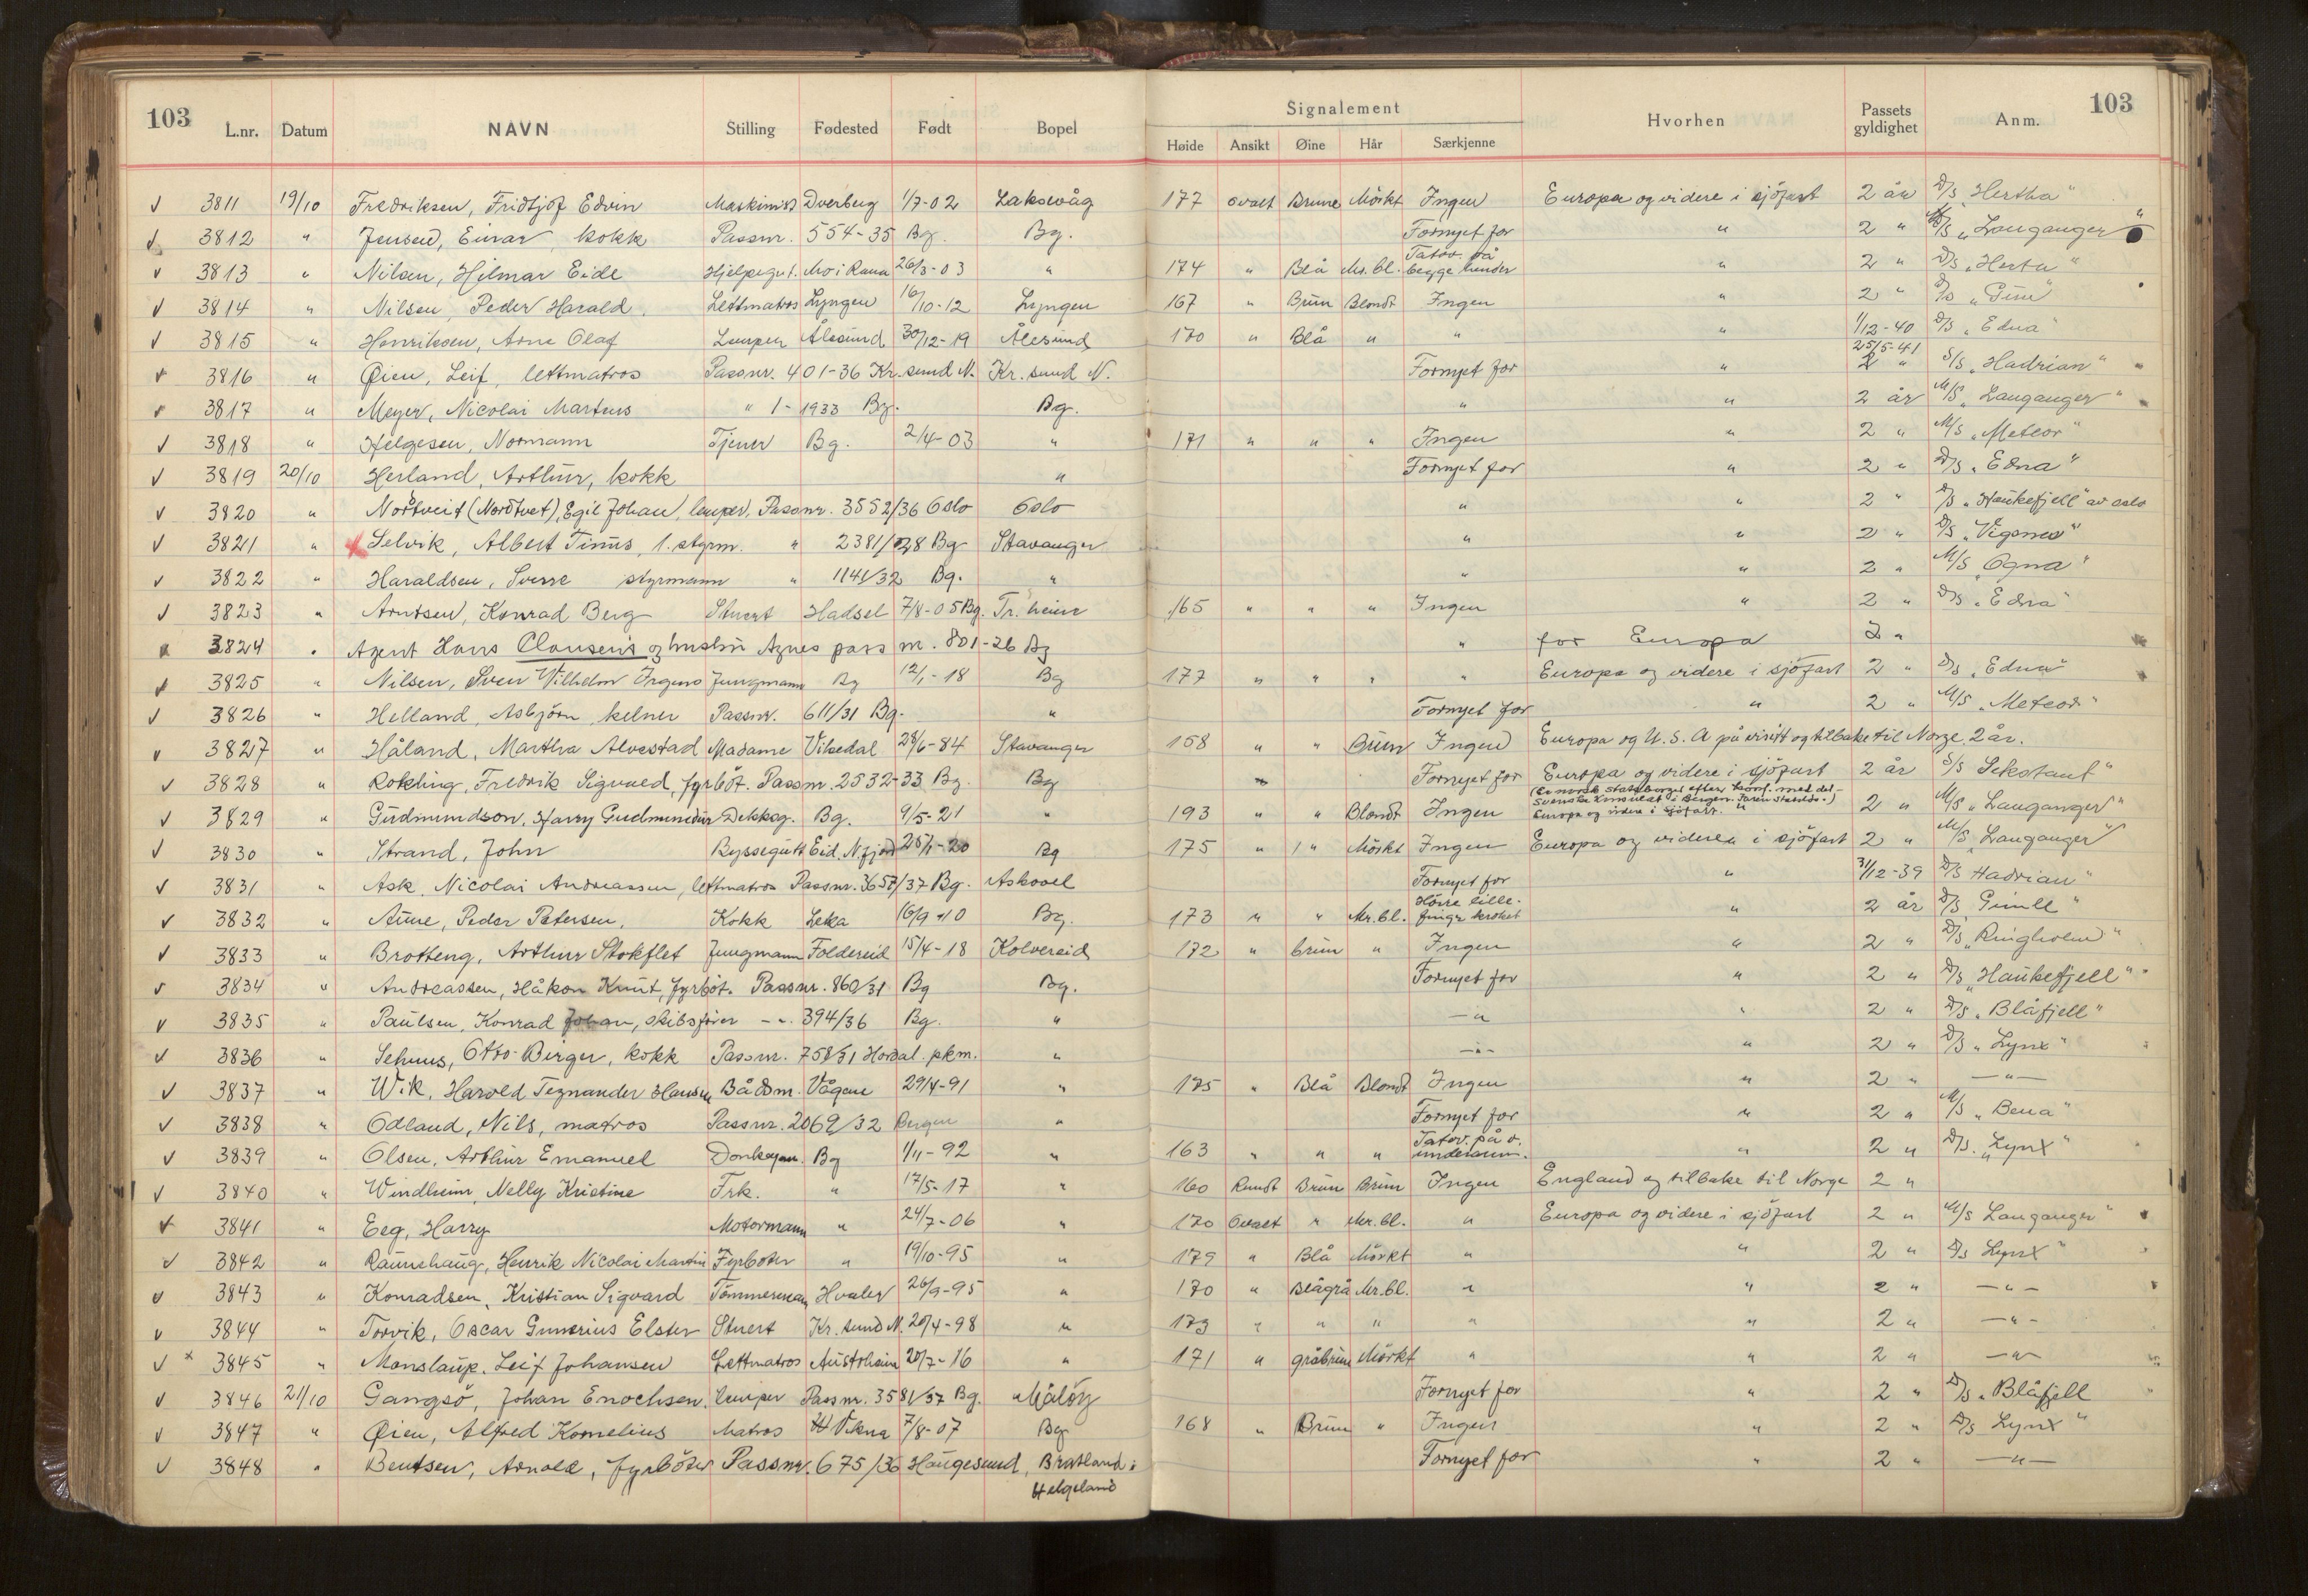 103
103
Signalement
L.nr. Datum NAVN Stilling Fødested Født Bopel Høide Ansikt Øine Hår Særkjenne Hvorhen Passets gyldighet Anm.
v 3811 19/10 Fredriksen, Fridtjof Edvin Maskinist Dverberg 1/7-02 Laksevåg 177 ovalt Brune Mörkt Ingen Europa og videre i sjöfart 2 år D/S „Hertha"
3812 " Jensen, Einar kokk Passnr. 554-35 Bg. Bg. Fornyet for " 2 " M/S „Lauganger"
v 3813 " Nilsen, Hilmar Eide Hjelpegut. Mo i Rana 26/3-03 " 174 " Blå Mr. bl. Tatov. på begge hender " 2 " D/S „Herta"
v 3814 " Nilsen, Peder Harald Lettmatros Lyngen 16/10-12 Lyngen 167 " Brun Blondt Ingen " 2 " D/S
v 3815 " Henriksen, Arne Olaf Lemper Ålesund 30/12-19 Ålesund 170 " Blå " " " 1/12-40 D/S „Edna"
v 3816 " Øien, Leif, lettmatros Passnr. 401-36 Kr. sund N. Kr. sund N. Fornyet for " 25/5-41 2 " S/S „Hadrian"
v 3817 " Meyer, Nicolai Martens " 1-1933 Bg. Bg. " " 2 år M/S „Lauganger"
v 3818 " Helgesen, Normann Tjener Bg. 2/4-03 " 171 " " " Ingen " 2 " M/S „Meteor"
v 3819 20/10 Herland, Arthur, kokk " Fornyet for " 2 " D/S „Edna"
v 3820 " Nortveit (Nordtvet), Egil Johan, lemper, Passnr. 3552/36 Oslo Oslo " " 2 " D/S „Haukefjell" av oslo
v 3821 " Selvik, Albert Tinius, 1. styrm. " 2381/28 Bg Stavanger " " 2 " D/S „Vigsnes"
v 3822 " Haraldsen, Sverre styrmann " 1141/32 Bg. " " " 2 " M/S „Ogna"
v 3823 " Arntsen, Konrad Berg Stuert Hadsel 7/8-05 Bg. Tr. heim 165 " " " Ingen " 2 " D/S „Edna"
3824 " Agent Hans Clausens og hustru Agnes pass nr. 801-26 Bg " for Europa 2 "
v 3825 " Nilsen, Sven Vilhelm Irgens Jungmann Bg 12/1-18 Bg 177 " " " " Europa og videre i sjöfart 2 " D/S „Edna"
v 3826 " Helland, Asbjörn, kelner Passnr. 611/31 Bg. " Fornyet for " 2 " M/S „Meteor"
v 3827 " Håland, Martha Alvestad Madame Vikedal 28/6-84 Stavanger 158 " " Brun Ingen Europa og U.S.A på visitt og tilbake til Norge 2 år.
v 3828 " Rokling, Fredrik Sigvald, fyrböt. Passnr. 2532-33 Bg. Bg Fornyet for Europa og videre i sjöfart 2 år S/S Sekstant"
v 3829 " Gudmundson, Harry Gudmundur Dekksg. Bg. 9/5-21 " 193 " " Blondt Ingen (Er norsk statsborger efter konf. med det Svenske Konsulat i Bergen.) Europa og videre i sjöfart. " 2 " M/S „Lauganger"
v 3830 " Strand, John Byssegutt Eid, N.fjord 25/1-20 Bg 175 " " Mörkt Ingen Europa og videre i sjöfart 2 " M/S „Lauganger"
v 3831 " Ask, Nicolai Andreassen, lettmatros Passnr. 3657/37 Bg. Askvoll Fornyet for " 31/12-39 D/S Hadrian"
v 3832 " Aune, Peder Petersen, Kokk Leka 16/9-10 Bg. 173 " " Mr. bl. Höire lille-finger kroket " 2 år D/S Gimle"
v 3833 " Brotteng, Arthur Stokflet Jungmann Foldereid 15/4-18 Kolvereid 172 " brun " Ingen " 2 " D/S „Ringholm"
v 3834 " Andreassen, Håkon Knut, fyrböt. Passnr. 860/31 Bg Bg. Fornyet for " 2 " D/S „Haukefjell"
v 3835 " Paulsen, Konrad Johan, skibsförer -"- 394/36 Bg. " -"- " 2 " D/S „Blåfjell"
v 3836 " Sehuus, Otto Birger, kokk Passnr. 758/31 Hordal. pkm. " -"- " 2 " D/S „Lynx"
v 3837 " Wik, Harold Tegnander Hansen Båtsm. Vågane 29/4-91 " 175 " Blå Blondt Ingen " 2 " -"-
v 3838 " Odland, Nils, matros Passnr. 2069/32 Bergen " Fornyet for " 2 " M/S „Bena"
v 3839 " Olsen, Arthur Emanuel Donkeym. Bg 1/11-92 " 163 " " " Tatov. på v. underarm. " 2 " D/S. „Lynx"
v 3840 " Windheim, Nelly Kristine Frk. " 17/5-17 " 160 Rundt Brun Brun Ingen England og tilbake til Norge 2 "
v 3841 " Eeg, Harry Motormann " 24/7-06 " 170 Ovalt " Mr. bl. " Europa og videre i sjöfart 2 " M/S Lauganger"
v 3842 " Raunehaug, Henrik Nicolai Martin Fyrböter " 19/10-95 " 179 " Blå Mörkt " " 2 " D/S Lynx"
v 3843 " Konradsen, Kristian Sigvard Tömmermann Hvaler 26/9-95 " 170 " Blågrå Mr. bl. " " 2 " -"-
v 3844 " Torvik, Oscar Gunerius Elster Stuert Kr. sund N. 20/4-98 " 173 " " " " " 2 " -"-
v x 3845 " Monslaup, Leif Johansen Lettmatros Austrheim 20/7-16 " 171 " gråbrun Mörkt " " 2 " -"-
v 3846 21/10 Gangsö, Johan Enochsen, lemper Passnr. 3581/37 Bg. Måløy Fornyet for " 2 " D/S „Blåfjell
v 3847 " Øien, Alfred Kornelius Matros Vikna 7/8-07 Bg 168 " Brun " Ingen " 2 " D/S Lynx"
v 3848 " Bentsen, Arnold, fyrböter Passnr. 675/36 Haugesund, Bratland i Helgeland Fornyet for " 2 " -"-